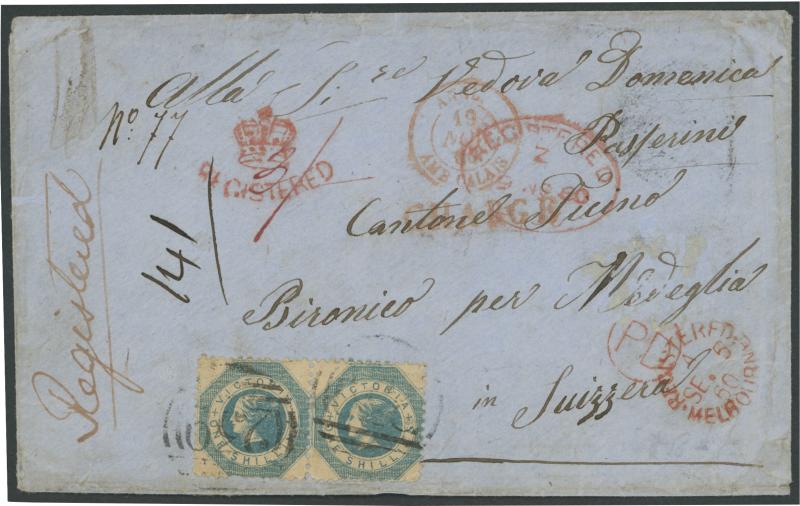 Alla S.ra Vedova Domenica
No. 77
Passerini
Cantone Ticino
Bironico per Medeglia
in Suizzera
Registered
141
REGISTERED
19
AMB. CALAIS
REGISTERED
Z
60
CHARGÉ
PD
REGISTERED MELBOURNE
A
SE 5
60
VICTORIA
ONE SHILLING
VICTORIA
SHILLING